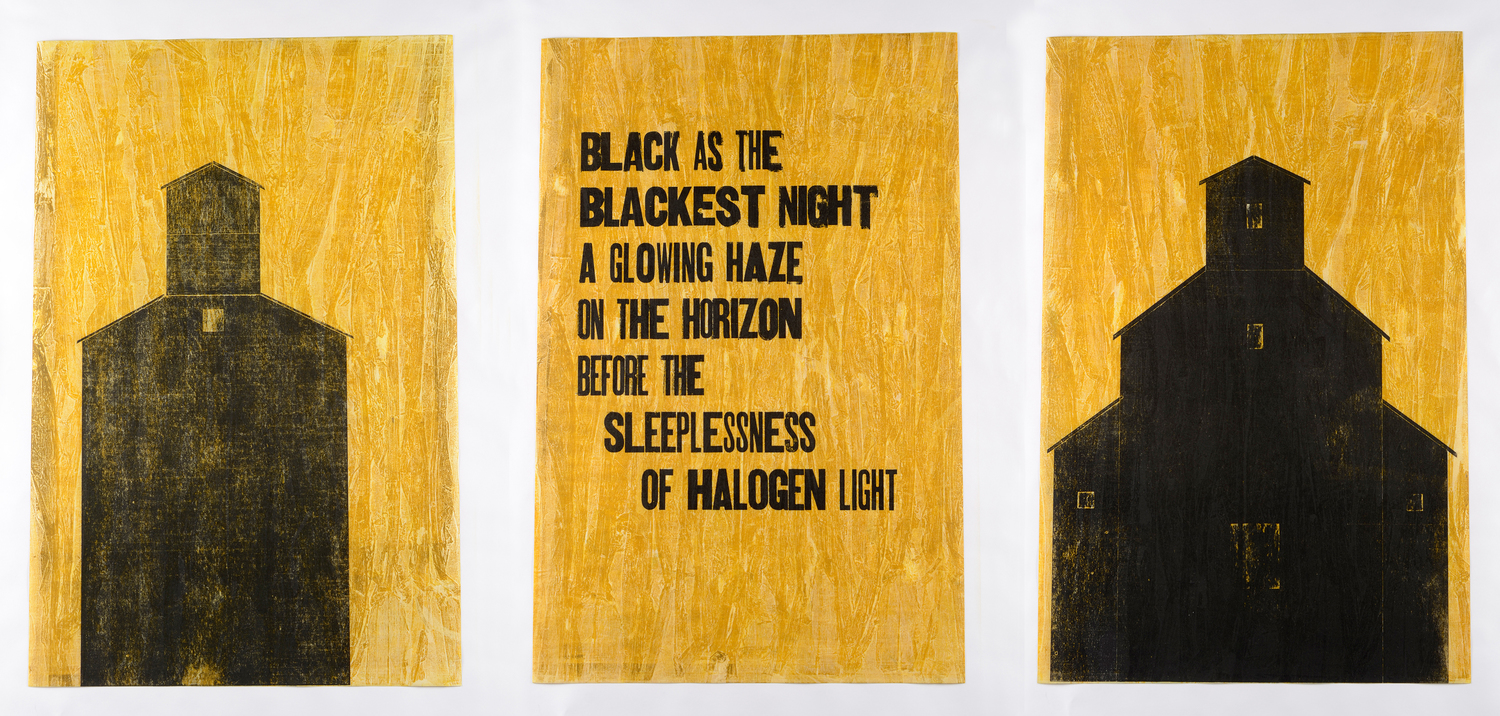 BLACK AS THE
BLACKEST NIGHT
A GLOWING HAZE
ON THE HORIZON
BEFORE THE
SLEEPLESSNESS
OF HALOGEN LIGHT